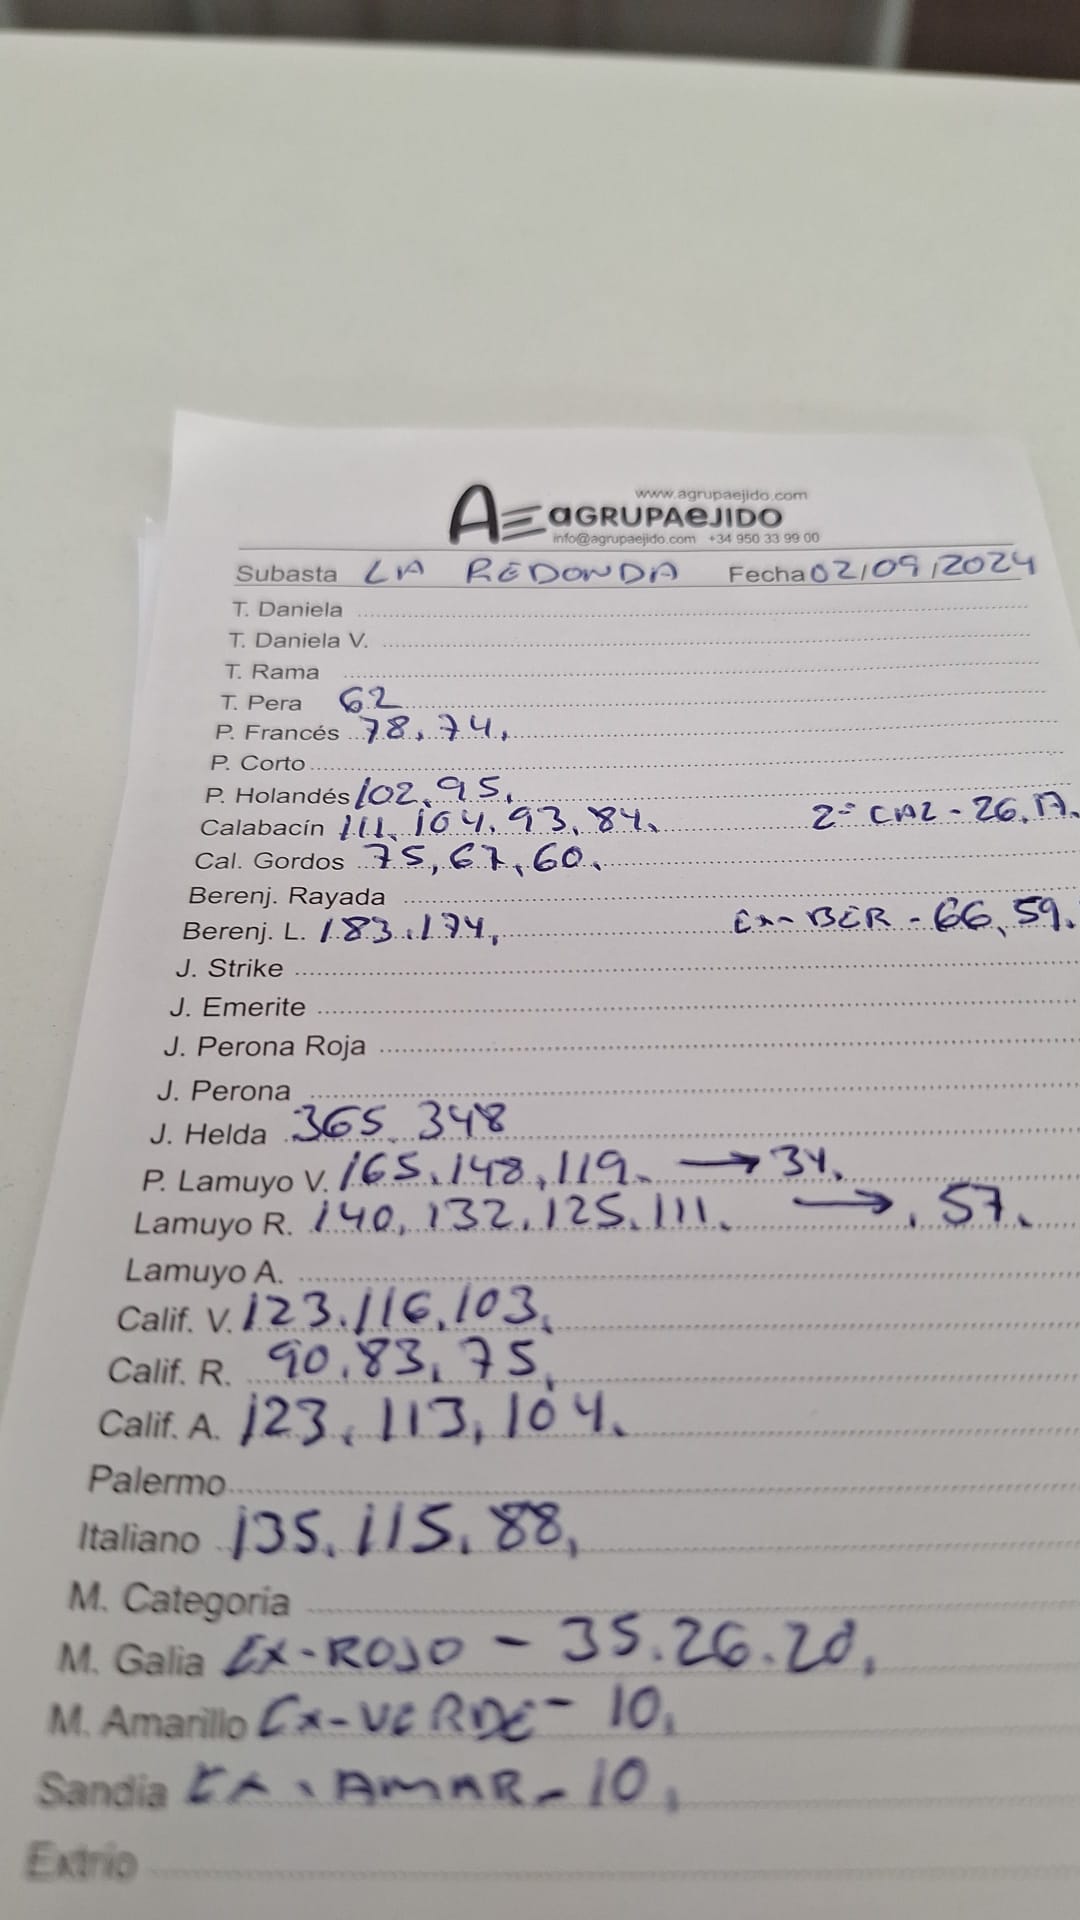 www.agrupaejido.com
AE aGRUPAeJIDO
info@agrupaejido.com +34 950 33 99 00
Subasta LA REDONDA Fecha 02/09/2024
T. Daniela
T. Daniela V.
T. Rama
T. Pera 62
P. Francés 78, 74,
P. Corto
P. Holandés 102, 95,
Calabacín 111, 104, 93, 84, 2ª CAL - 26, 17,
Cal. Gordos 75, 67, 60,
Berenj. Rayada
Berenj. L. 183, 174, Ex-BER - 66, 59,
J. Strike
J. Emerite
J. Perona Roja
J. Perona
J. Helda 365, 348
P. Lamuyo V. 165, 148, 119, → 34,
Lamuyo R. 140, 132, 125, 111, → , 57,
Lamuyo A.
Calif. V. 123, 116, 103,
Calif. R. 90, 83, 75,
Calif. A. 123, 113, 104,
Palermo
Italiano 135, 115, 88,
M. Categoria
M. Galia EX-ROJO - 35, 26, 20,
M. Amarillo Ex-VERDE - 10,
Sandia EX-AMAR - 10,
Extrio